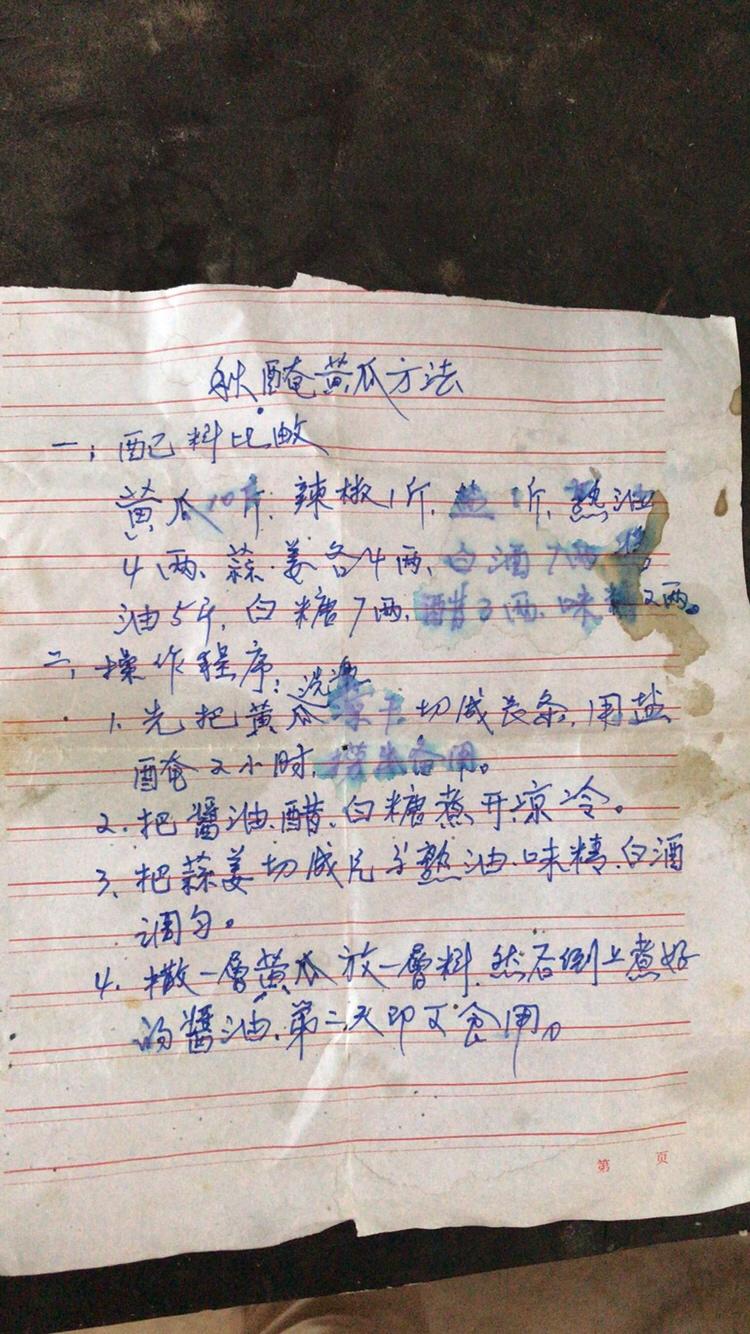 秋醃黄瓜方法
一；配料比做
黄瓜10斤，辣椒1斤，盐1斤，熟油
4两、蒜姜各4两，白酒7两
油5斤，白糖7两，醋2两，味精2两。
二、操作程序：洗净
1、先把黄瓜凉干切成长条，用盐
醃2小时，备用。
2、把醬油、醋、白糖煮开凉冷。
3、把蒜姜切成熟油、味精、白酒
调匀。
4、撒一層黄瓜放一層料，然后倒上煮好
的醬油，第二天即可食用。
第 页